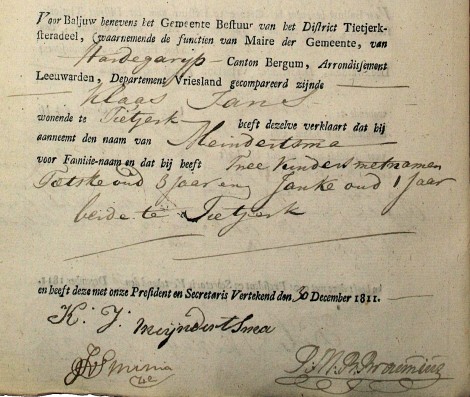 Voor Baljuw benevens het Gemeente Bestuur van het District Tietjerk-
steradeel, (waarnemende de functien van Maire der Gemeente, van
Hardegarijp — Canton Bergum, Arrondissement
Leeuwarden, Departement Vriesland gecompareerd zijnde
Klaas Jans
wonende te Tietjerk heeft dezelve verklaart dat hij
aanneemt den naam van Meindertsma
voor Familie-naam en dat hij heeft Twee kinders metnamen
Tetske oud 3 Jaar en Janke oud 1 Jaar
beide te Tietjerk
en heeft deze met onze President en Secretaris Vertekend den 30 December 1811.
K: J: Meijndertsma